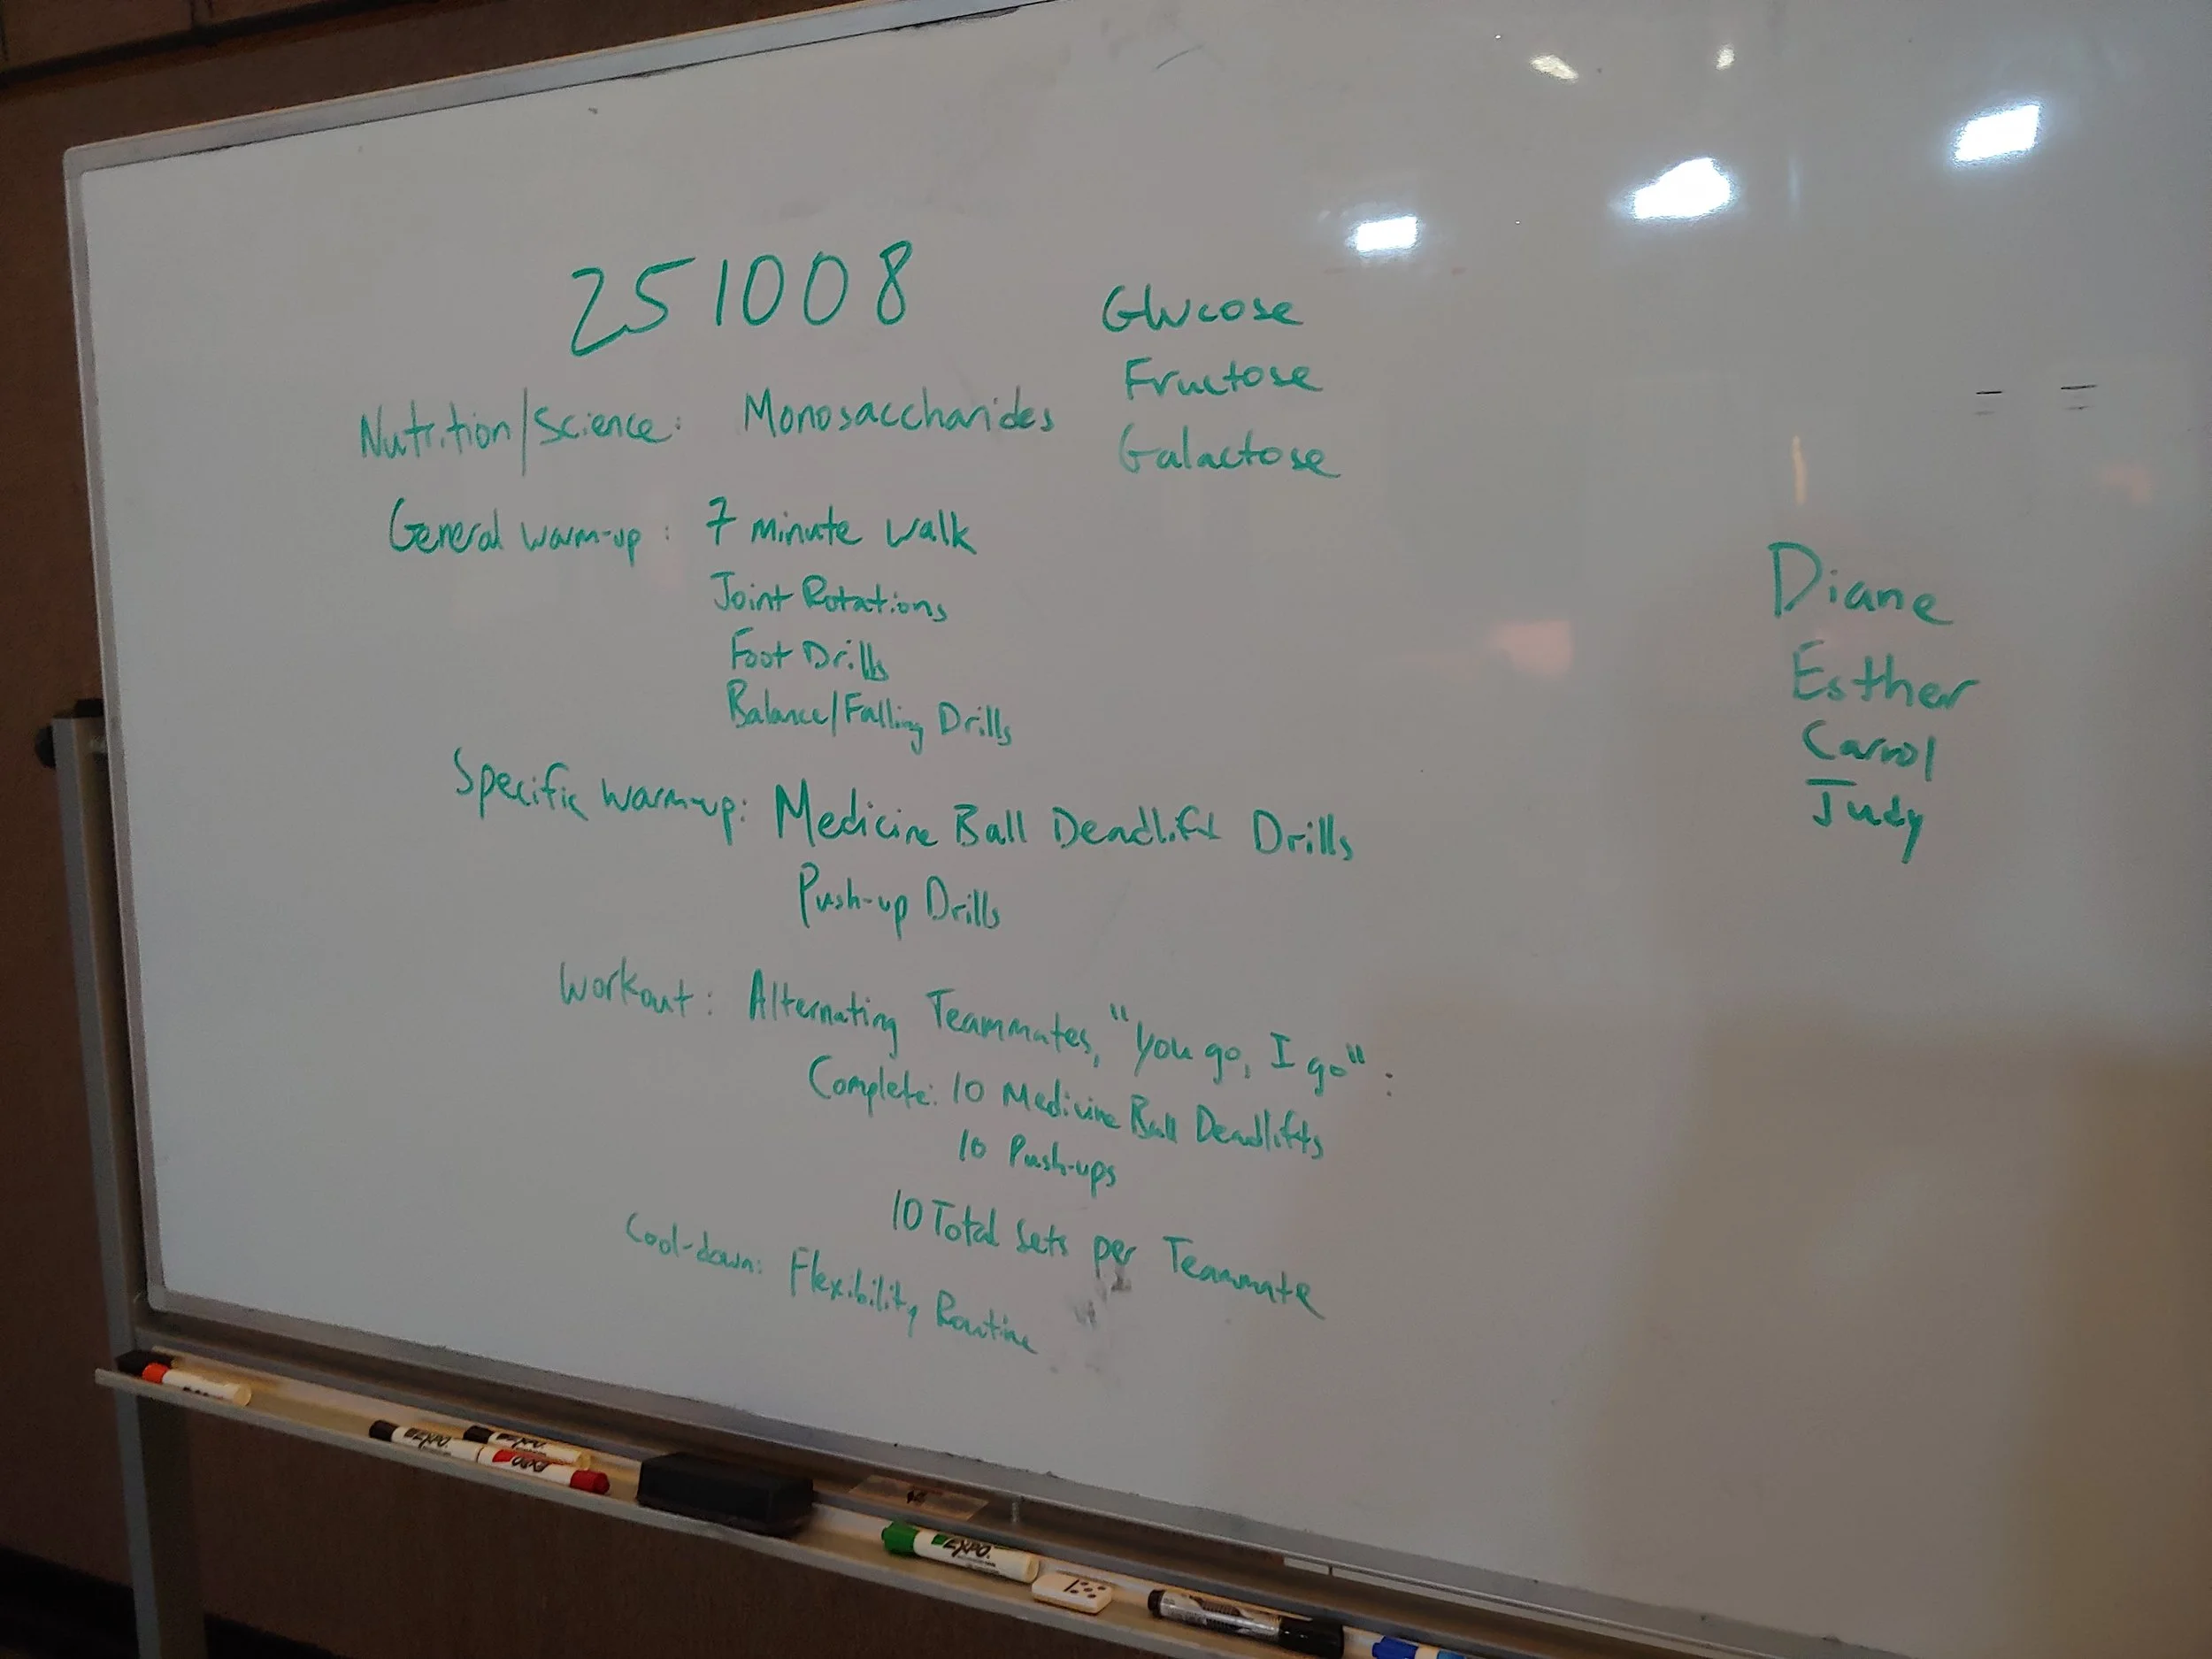 251008
Glucose
Fructose
Nutrition/Science: Monosaccharides
Galactose
General warm-up: 7 minute walk
Joint Rotations
Foot Drills
Balance/Falling Drills
Specific warm-up: Medicine Ball Deadlift Drills
Push-up Drills
Workout: Alternating Teammates, "you go, I go":
Complete: 10 Medicine Ball Deadlifts
10 Push-ups
10 Total Sets per Teammate
Cool-down: Flexibility Routine
Diane
Esther
Carrol
Judy
EXPO
EXPO
EXPO
EXPO